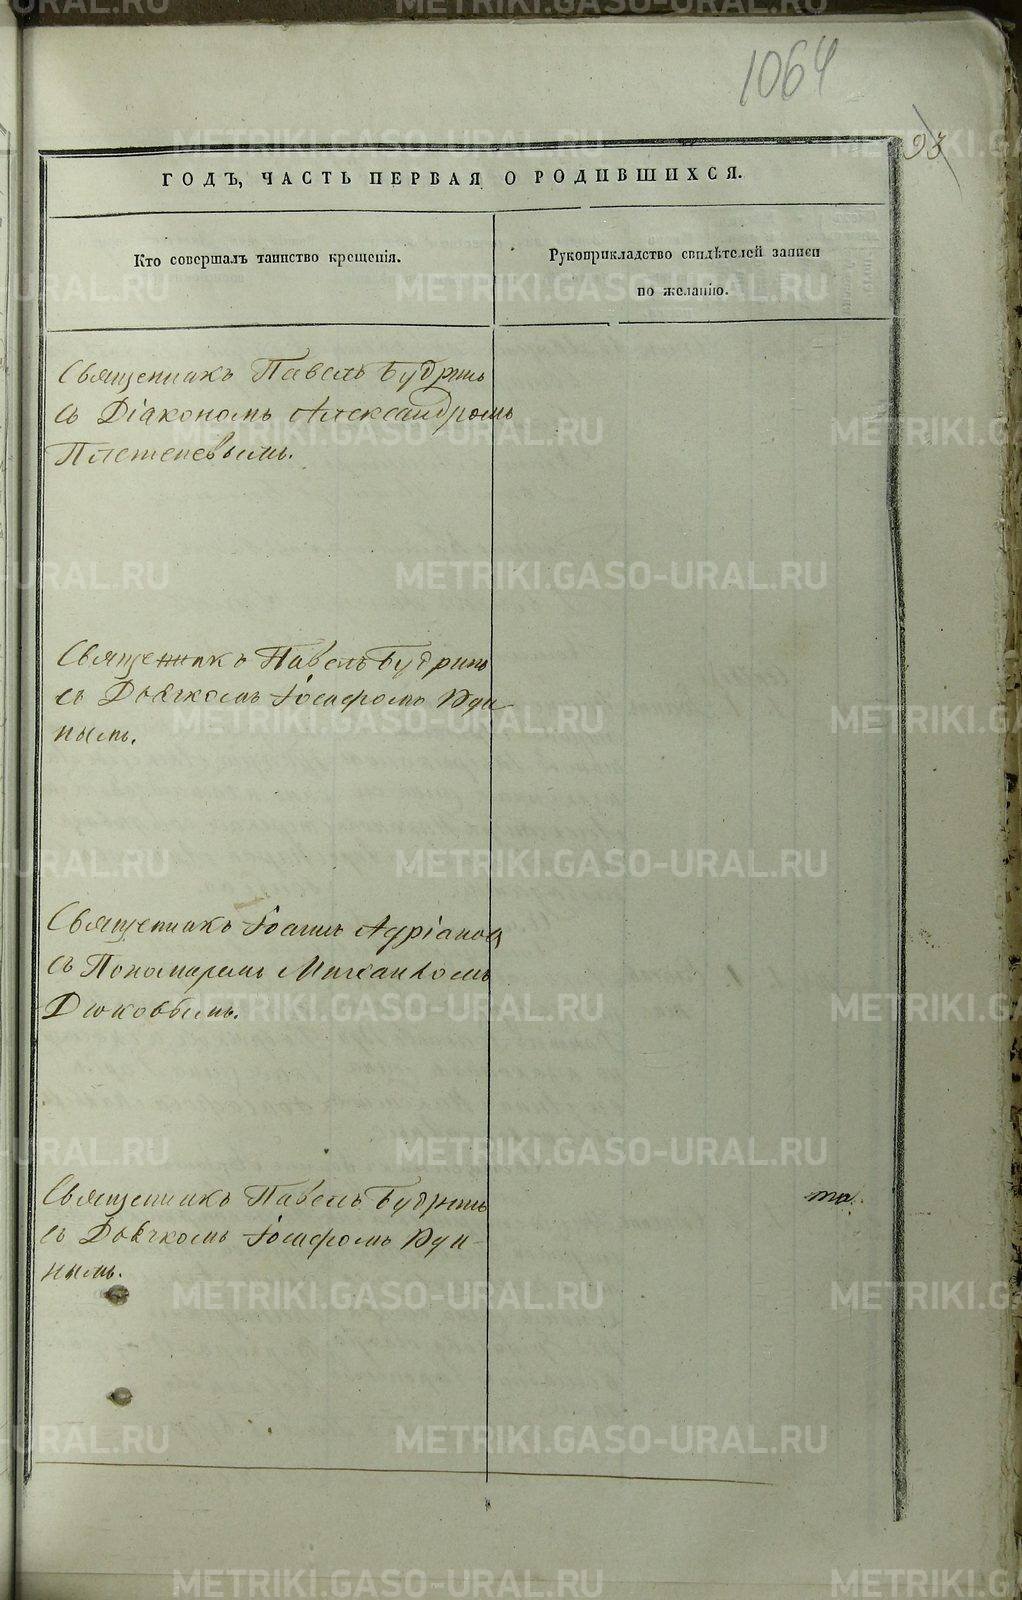 1064
93
ГОДЪ, ЧАСТЬ ПЕРВАЯ О РОДИВШИХСЯ.
Кто совершалъ таинство крещенія.
Рукоприкладство свидѣтелей записи
по желанію.
Священникъ Павелъ Будринъ
съ Діакономъ Александромъ
Плетеневымъ.
Священникъ Павелъ Будринъ
съ Дьячкомъ Іосафомъ
нымъ.
Священникъ Іоаннъ Адріановъ
съ Пономаремъ Михаиломъ
Дюковымъ.
Священникъ Павелъ Будринъ
съ Дьячкомъ Іосафомъ
нымъ.
METRIKI.GASO-URAL.RU